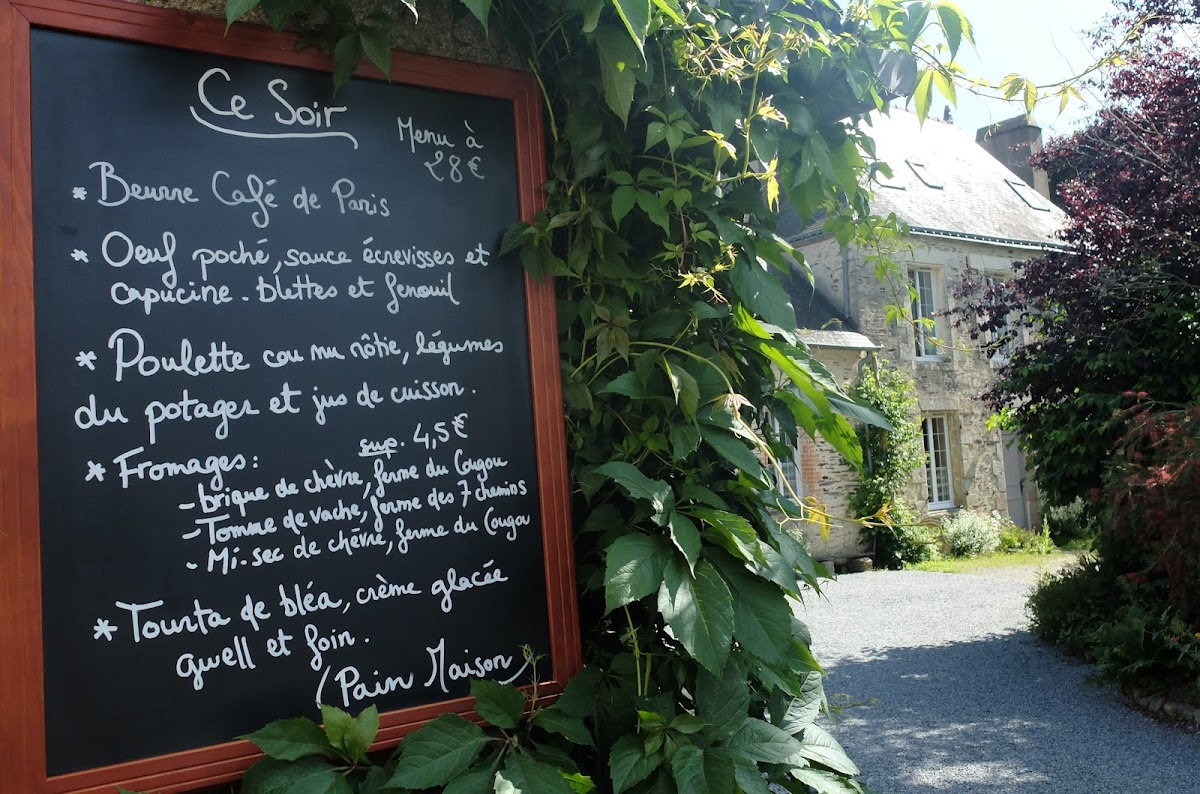 Ce Soir
Menu à
28 €
* Beurre Café de Paris
* Oeuf poché, sauce écrevisses et
capucine. blettes et fenouil
* Poulette cou nu rôtie, légumes
du potager et jus de cuisson.
* Fromages: sup. 4,5 €
- brique de chèvre, ferme du Cougou
- Tomme de vache, ferme des 7 chemins
- Mi-sec de chèvre, ferme du Cougou
* Tourta de bléa, crème glacée
gwell et foin.
(Pain Maison)